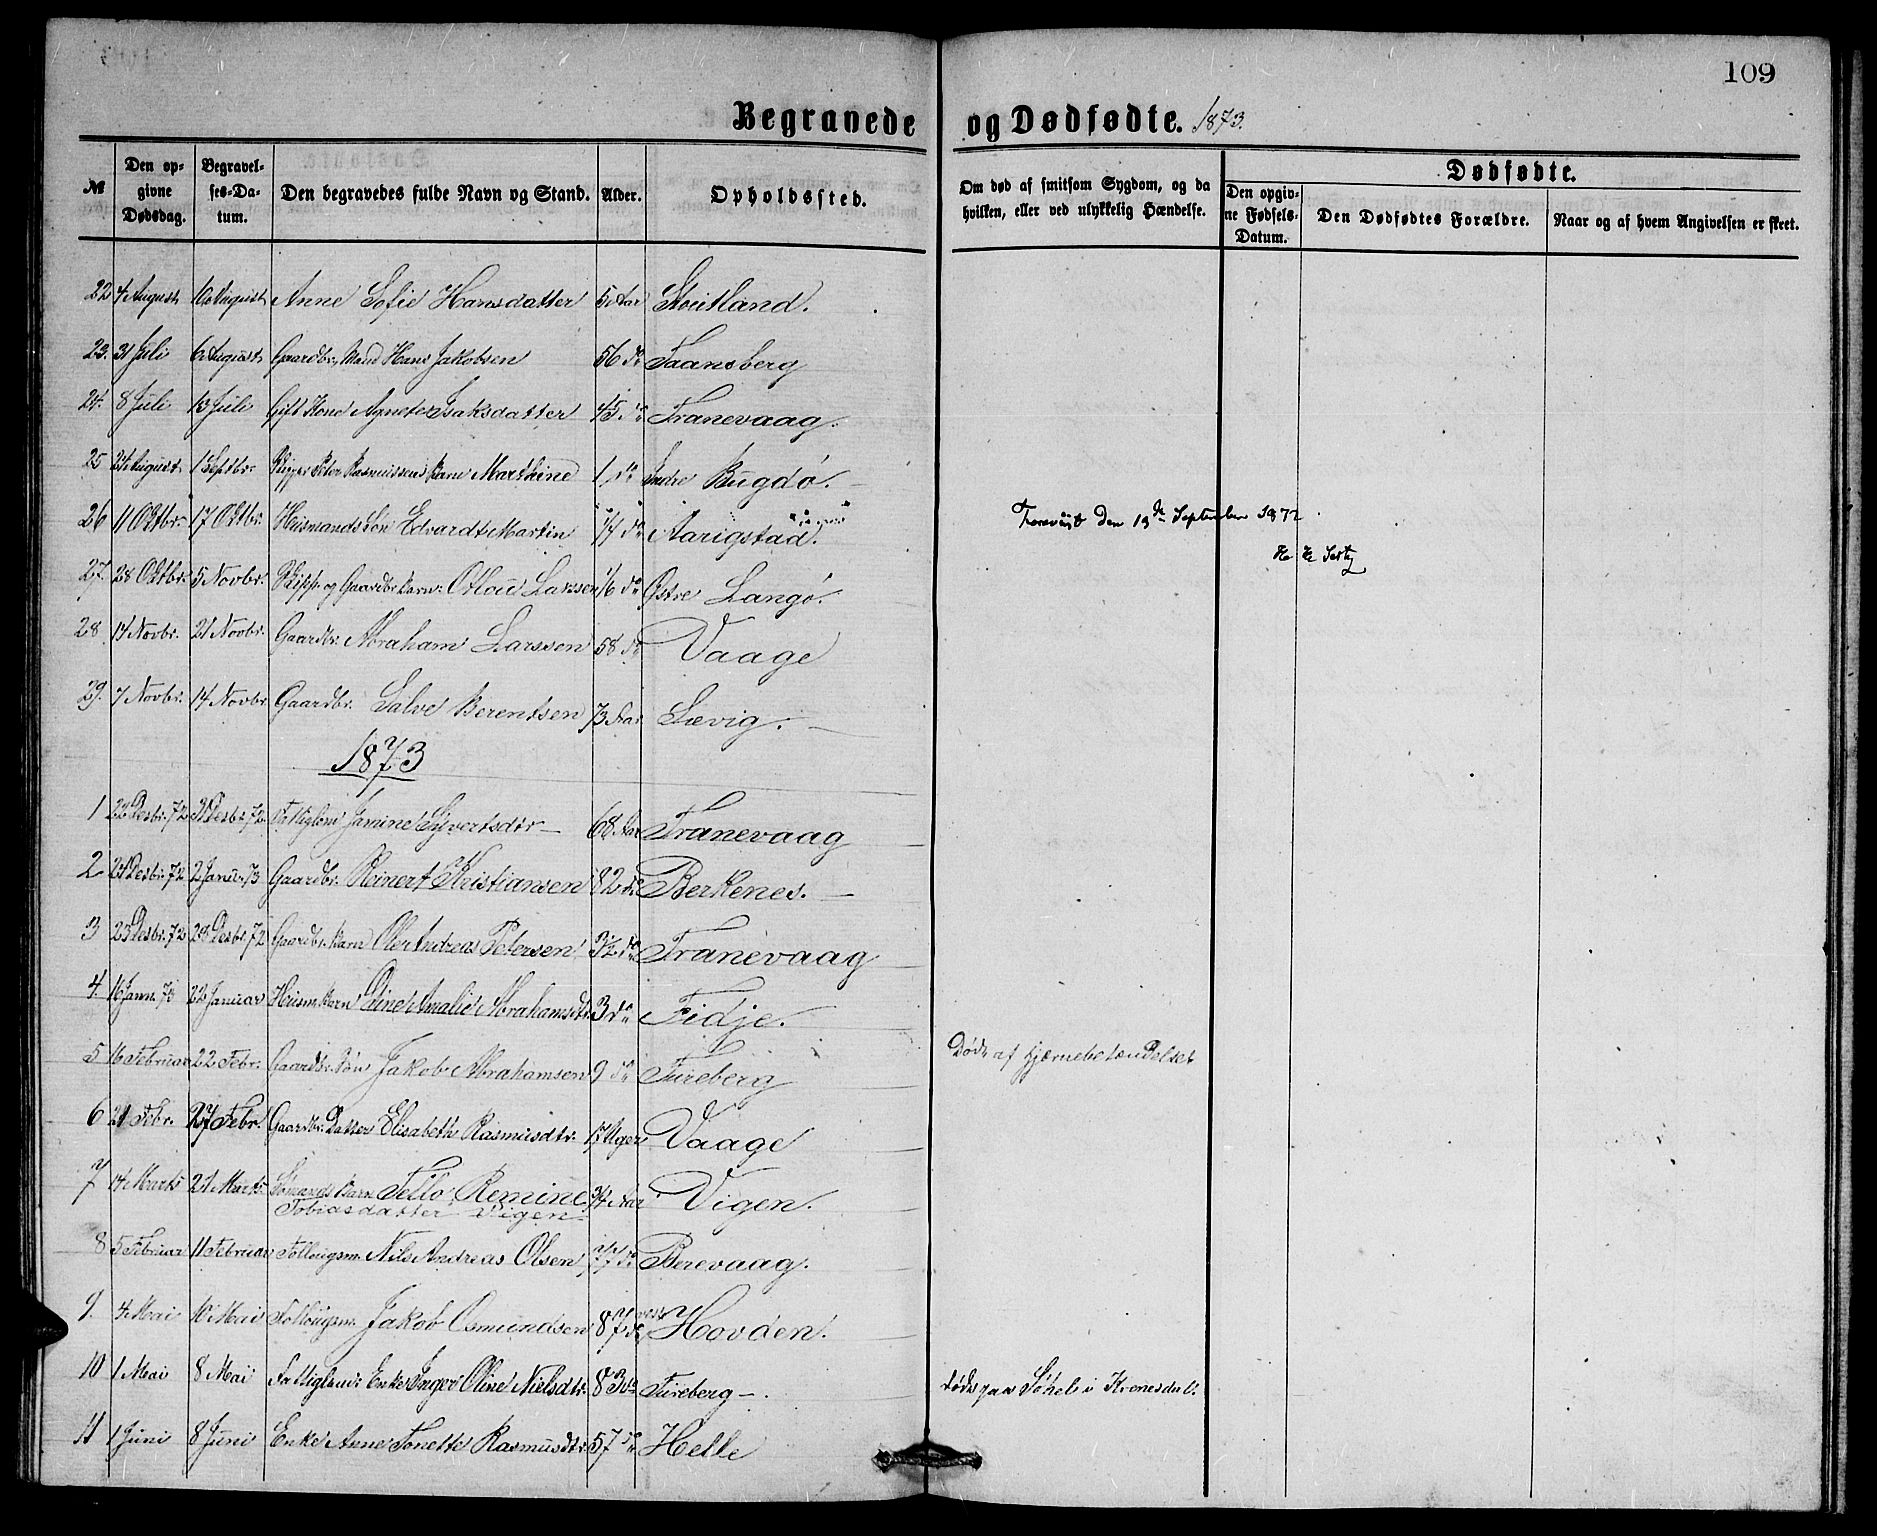 109
Begravede og Dødfødte. 1873.
№ Den opgivne Dødsdag. Begravelses-Datum. Den begravedes fulde Navn og Stand. Alder. Opholdssted. Om død af smitsom Sygdom, og da hvilken, eller ved ulykkelig Hændelse. Dødfødte. Den opgivne Fødsels-Datum. Den Dødfødtes Forældre. Naar og af hvem Angivelsen er skeet.
22 4 August 10 August Anne Sofie Hansdatter 5 Aar
23. 31 Juli 6 August Gaardbr. Hans Jakobsen 56 do
24. 8 Juli 13 Juli Gift Kone Agnete Isaksdatter 45 do Tranevaag.
25 24 August 1 Septbr. Peter Rasmussens Barn Marthine 1 do Indre Bugdø.
26 11 Oktbr. 17 Oktbr. Huismands Søn Edvardt Martin do Aarigstad. Forevist den 13de September 1872
27. 28 Oktbr. 5 Novbr. Skipp. og Gaardbr. Barn Larssen 1/6 do Østre Langø.
28 14 Novbr. 21 Novbr. Gaardbr. Abraham Larssen 58 do Vaage
29. 7 Novbr. 14 Novbr. Gaardbr. Salve Berentsen 73 Aar Lævig.
1873
1 22 Desbr. 72 31 Desbr. 72 Fattiglem Janine Syvertsdtr 68 Aar Tranevaag
2 24 Desbr. 72 2 Janu. 73 Gaardbr. Reinert Kristiansen 82 do Berkenes.
3 23 Desbr. 72 28 Desbr. 72 Gaardbr. Barn Ole Andreas Petersen 3 1/2 do Tranevaag
4. 16 Janu. 73 22 Januar Huism. Barn Amalie Abrahamsdtr. 3 do Fidje.
5 16 Februar 22 Febr. Gaardbr. Søn Jakob Abrahamsen 9 do Fureberg Døde af Hjærnebetændelse
6 21 Febr. 27 Febr. Gaardbr. Datter Elisabeth Rasmusdtr. 17 Uger Vaage
7 14 Marts 21 Marts Sømands Barn Remine 3/4 Aar Vigen.
Tobiasdatter Vigen
8 5 Februar 11 Februar Follougsm. Nils Andreas Olsen 77 do Berevaag.
9. 4 Mai 10 Mai Follougsm. Jakob Osmundsen 87 do vest Hovden.
10 1 Mai 8 Mai Fattiglem Enke Oline Nielsdtr. 83 do Fureberg Døde paa
11 1 Juni 8 Juni Enke Anne Tonette Rasmusdtr. 57 do Helle